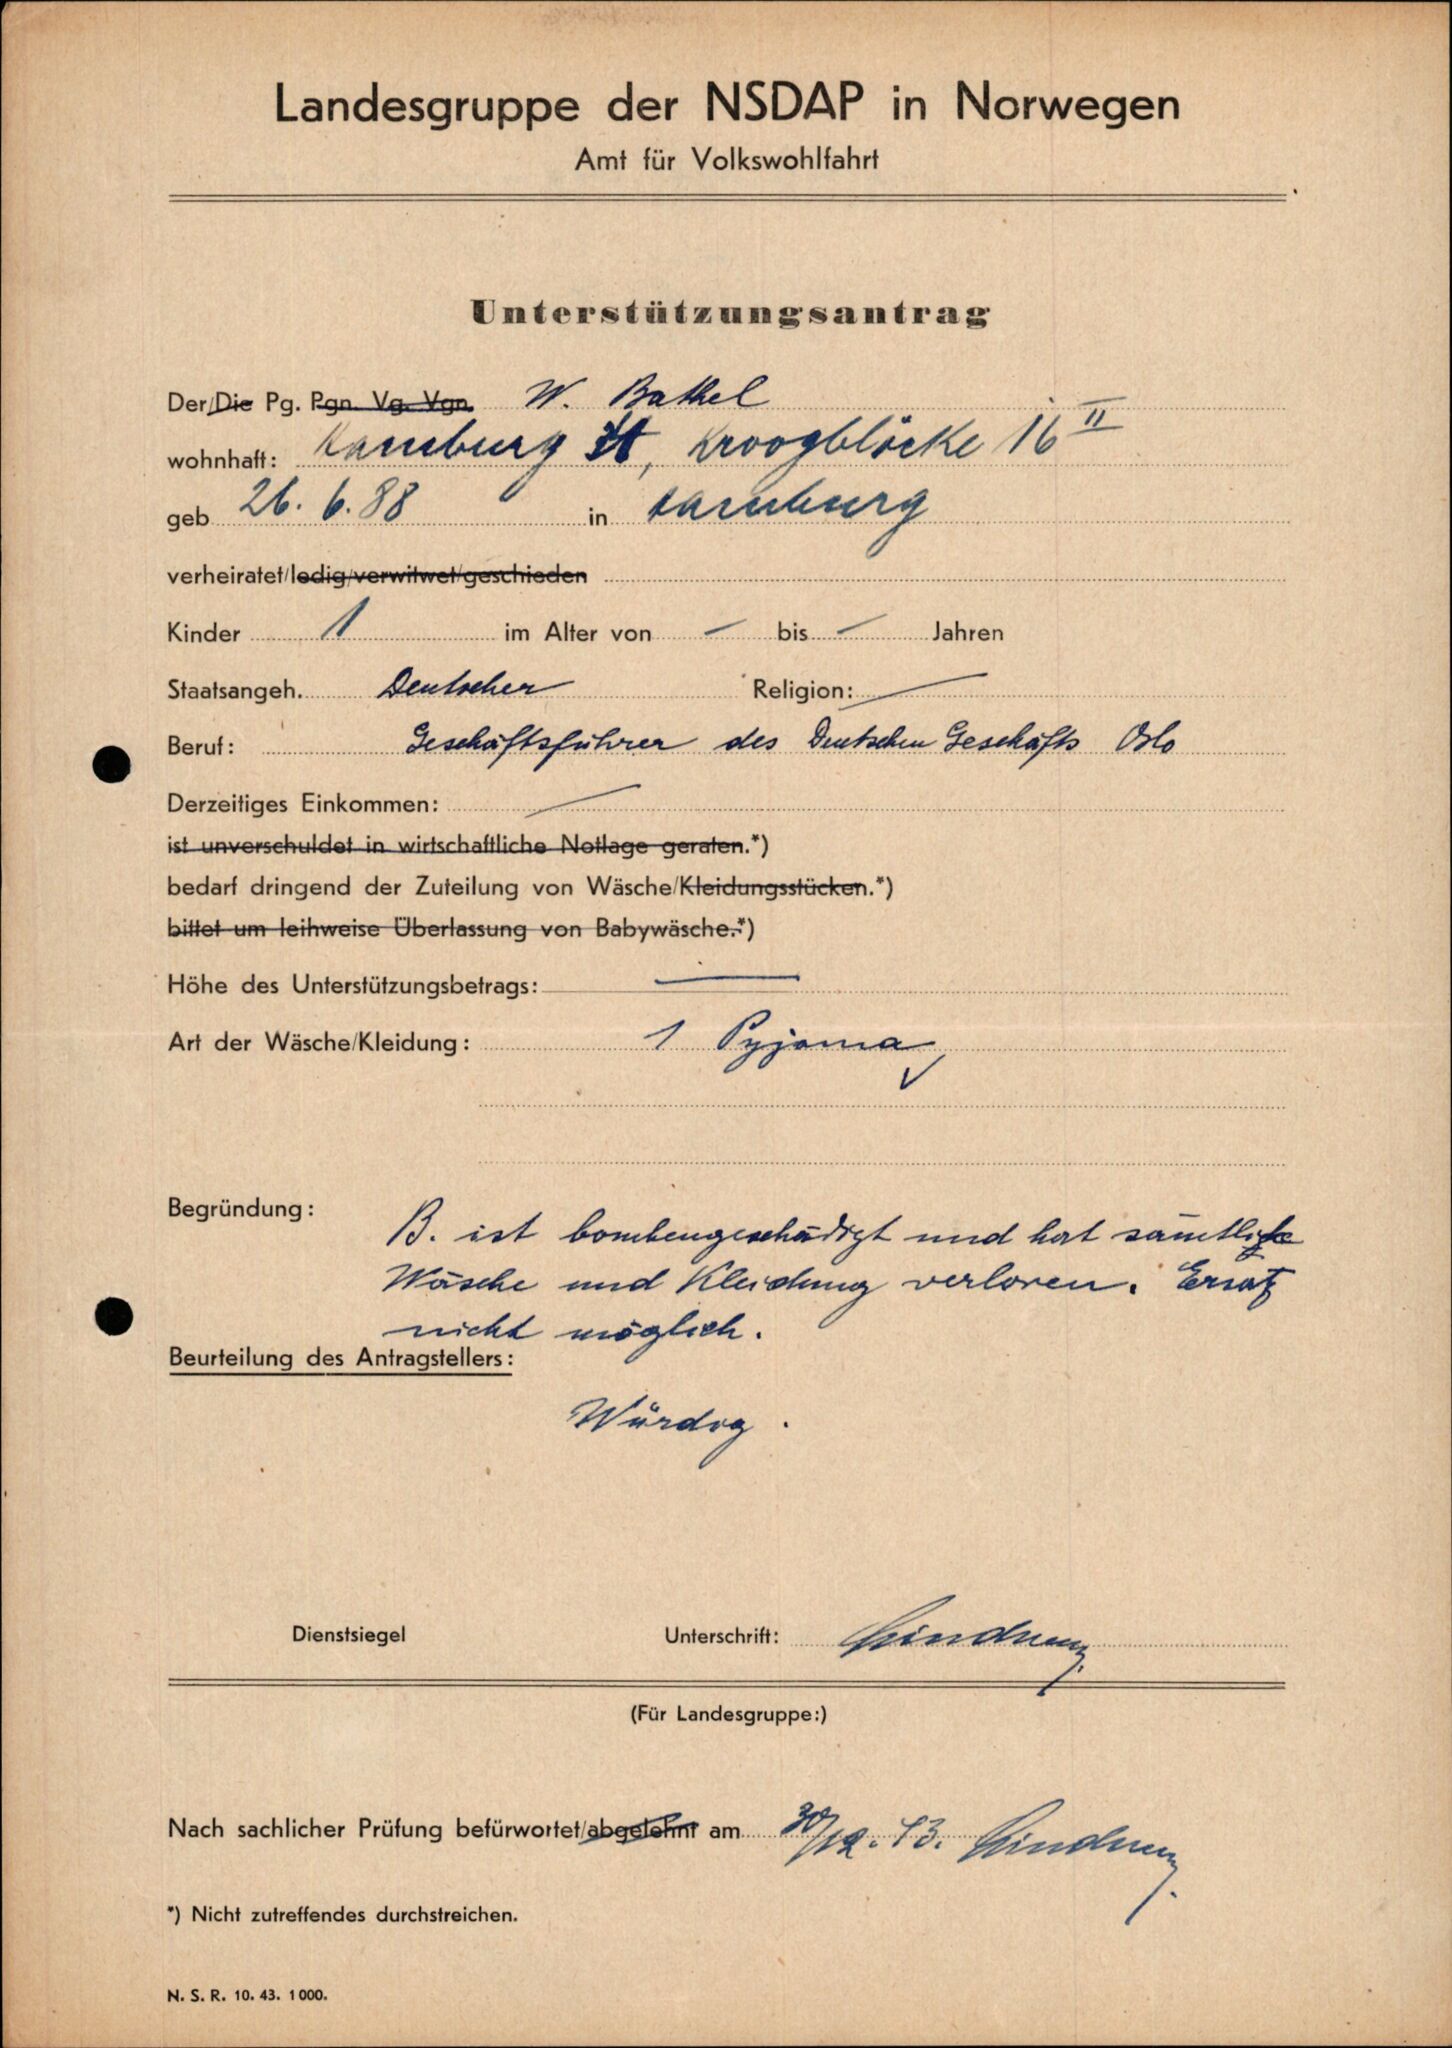 Landesgruppe der NSDAP in Norwegen
Amt für Volkswohlfahrt
Unterstützungsantrag
Der/Die Pg. Pgn. Vg. Vgn. W. Bathel
wohnhaft: Hamburg, Kroogblöcke 16 II
geb. 26. 6. 88 in Hamburg
verheiratet/ledig/verwitwet/geschieden
Kinder 1 im Alter von – bis – Jahren
Staatsangeh. Deutscher Religion: —
Beruf: Geschäftsführer des Deutschen Geschäfts Oslo
Derzeitiges Einkommen: —
ist unverschuldet in wirtschaftliche Notlage geraten.*)
bedarf dringend der Zuteilung von Wäsche/Kleidungsstücken.*)
bittet um leihweise Überlassung von Babywäsche.*)
Höhe des Unterstützungsbetrags: —
Art der Wäsche/Kleidung: 1 Pyjama
Begründung: B. ist bombengeschädigt und hat sämtliche
Wäsche und Kleidung verloren. Ersatz
nicht möglich.
Beurteilung des Antragstellers:
Würdig.
Dienstsiegel Unterschrift:
(Für Landesgruppe:)
Nach sachlicher Prüfung befürwortet/abgelehnt am 30/12. 43.
*) Nicht zutreffendes durchstreichen.
N. S. R. 10. 43. 1000.